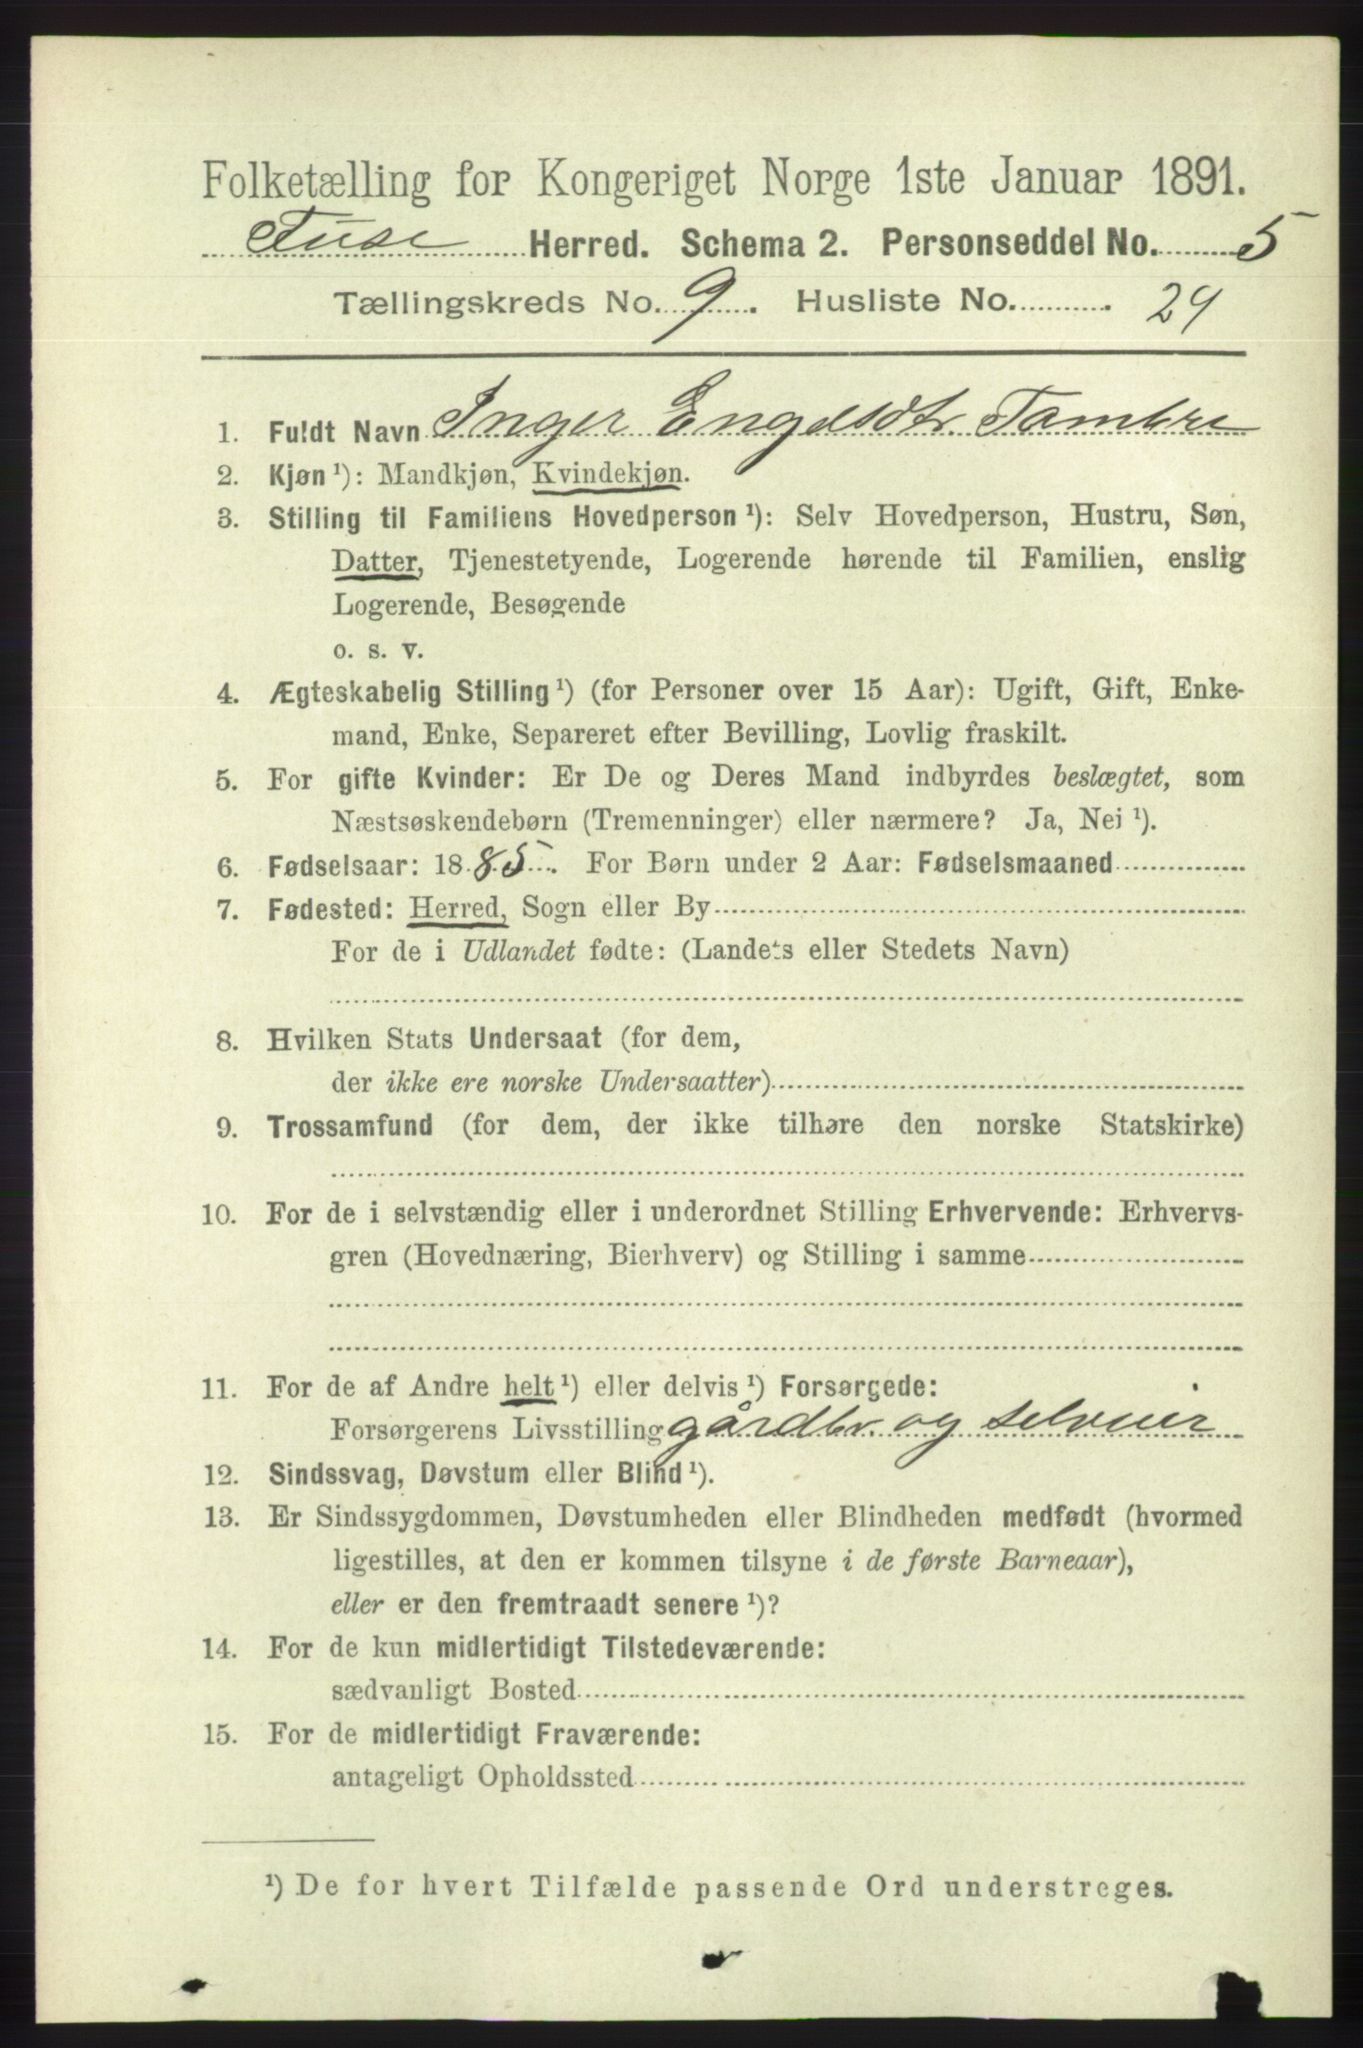 Folketælling for Kongeriget Norge 1ste Januar 1891.
Fuse Herred. Schema 2. Personseddel No. 5
Tællingskreds No. 9. Husliste No. 24
1. Fuldt Navn Inger Engelsdtr. Tombre
2. Kjøn ¹): Mandkjøn, Kvindekjøn.
3. Stilling til Familiens Hovedperson ¹): Selv Hovedperson, Hustru, Søn,
Datter, Tjenestetyende, Logerende hørende til Familien, enslig
Logerende, Besøgende
o. s. v.
4. Ægteskabelig Stilling ¹) (for Personer over 15 Aar): Ugift, Gift, Enke-
mand, Enke, Separeret efter Bevilling, Lovlig fraskilt.
5. For gifte Kvinder: Er De og Deres Mand indbyrdes beslægtet, som
Næstsøskendebørn (Tremenninger) eller nærmere? Ja, Nei ¹).
6. Fødselsaar: 1885. For Børn under 2 Aar: Fødselsmaaned
7. Fødested: Herred, Sogn eller By
For de i Udlandet fødte: (Landets eller Stedets Navn)
8. Hvilken Stats Undersaat (for dem,
der ikke ere norske Undersaatter)
9. Trossamfund (for dem, der ikke tilhøre den norske Statskirke)
10. For de i selvstændig eller i underordnet Stilling Erhvervende: Erhvervs-
gren (Hovednæring, Bierhverv) og Stilling i samme
11. For de af Andre helt ¹) eller delvis ¹) Forsørgede:
Forsørgerens Livsstilling gårdbr. og selveier
12. Sindssvag, Døvstum eller Blind ¹).
13. Er Sindssygdommen, Døvstumheden eller Blindheden medfødt (hvormed
ligestilles, at den er kommen tilsyne i de første Barneaar),
eller er den fremtraadt senere ¹)?
14. For de kun midlertidigt Tilstedeværende:
sædvanligt Bosted
15. For de midlertidigt Fraværende:
antageligt Opholdssted
¹) De for hvert Tilfælde passende Ord understreges.